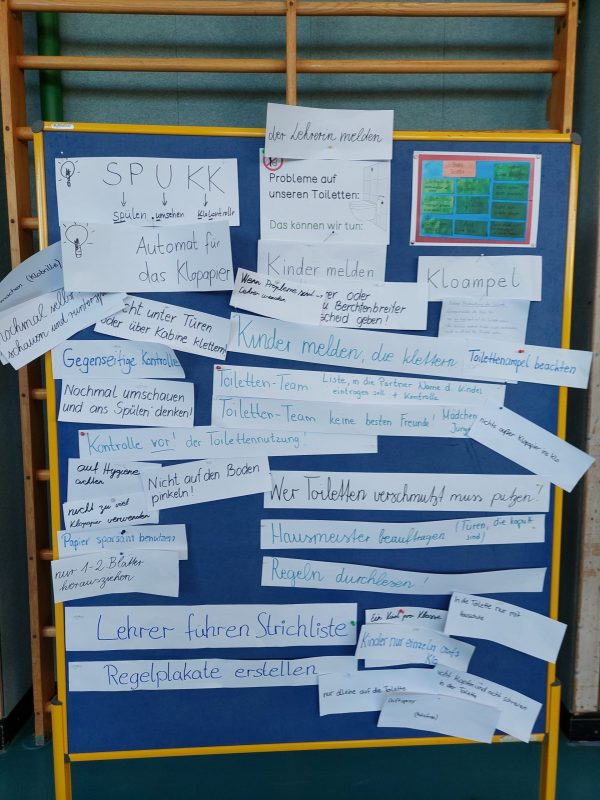 der Lehrerin melden
SPUKK
spülen umsehen Klokontrolle
Probleme auf
unseren Toiletten:
Das können wir tun:
Automat für
das Klopapier
Kinder melden
Kloampel
(Klobrille)
nochmal selbst
schauen und
Wenn Probleme sind
Lehrer oder
Berchtenbreiter
Bescheid geben!
nicht unter Türen
oder über Kabine klettern!
Kinder melden, die klettern
Toilettenampel beachten
Gegenseitige Kontrolle
Toiletten-Team Liste, in die Partner Name d. Kindes
eintragen soll + Kontrolle
Nochmal umschauen
und ans Spülen denken!
Toiletten-Team keine besten Freunde! Mädchen
nichts außer Klopapier ins Klo
Kontrolle vor! der Toilettennutzung!
auf Hygiene
achten
Nicht auf den Boden
pinkeln!
nicht zu viel
Klopapier verwenden
Wer Toiletten verschmutzt muss putzen!
Papier sparsam benutzen
Hausmeister beauftragen (Türen, die kaputt
sind)
nur 1-2 Blätter
herausziehen
Regeln durchlesen!
Lehrer führen Strichliste
Ein Kind pro Klasse
In die Toilette nur mit
Kinder nur einzeln aufs
Klo
Regelplakate erstellen
nur alleine auf die Toilette
und nicht schreien
in der Toilette